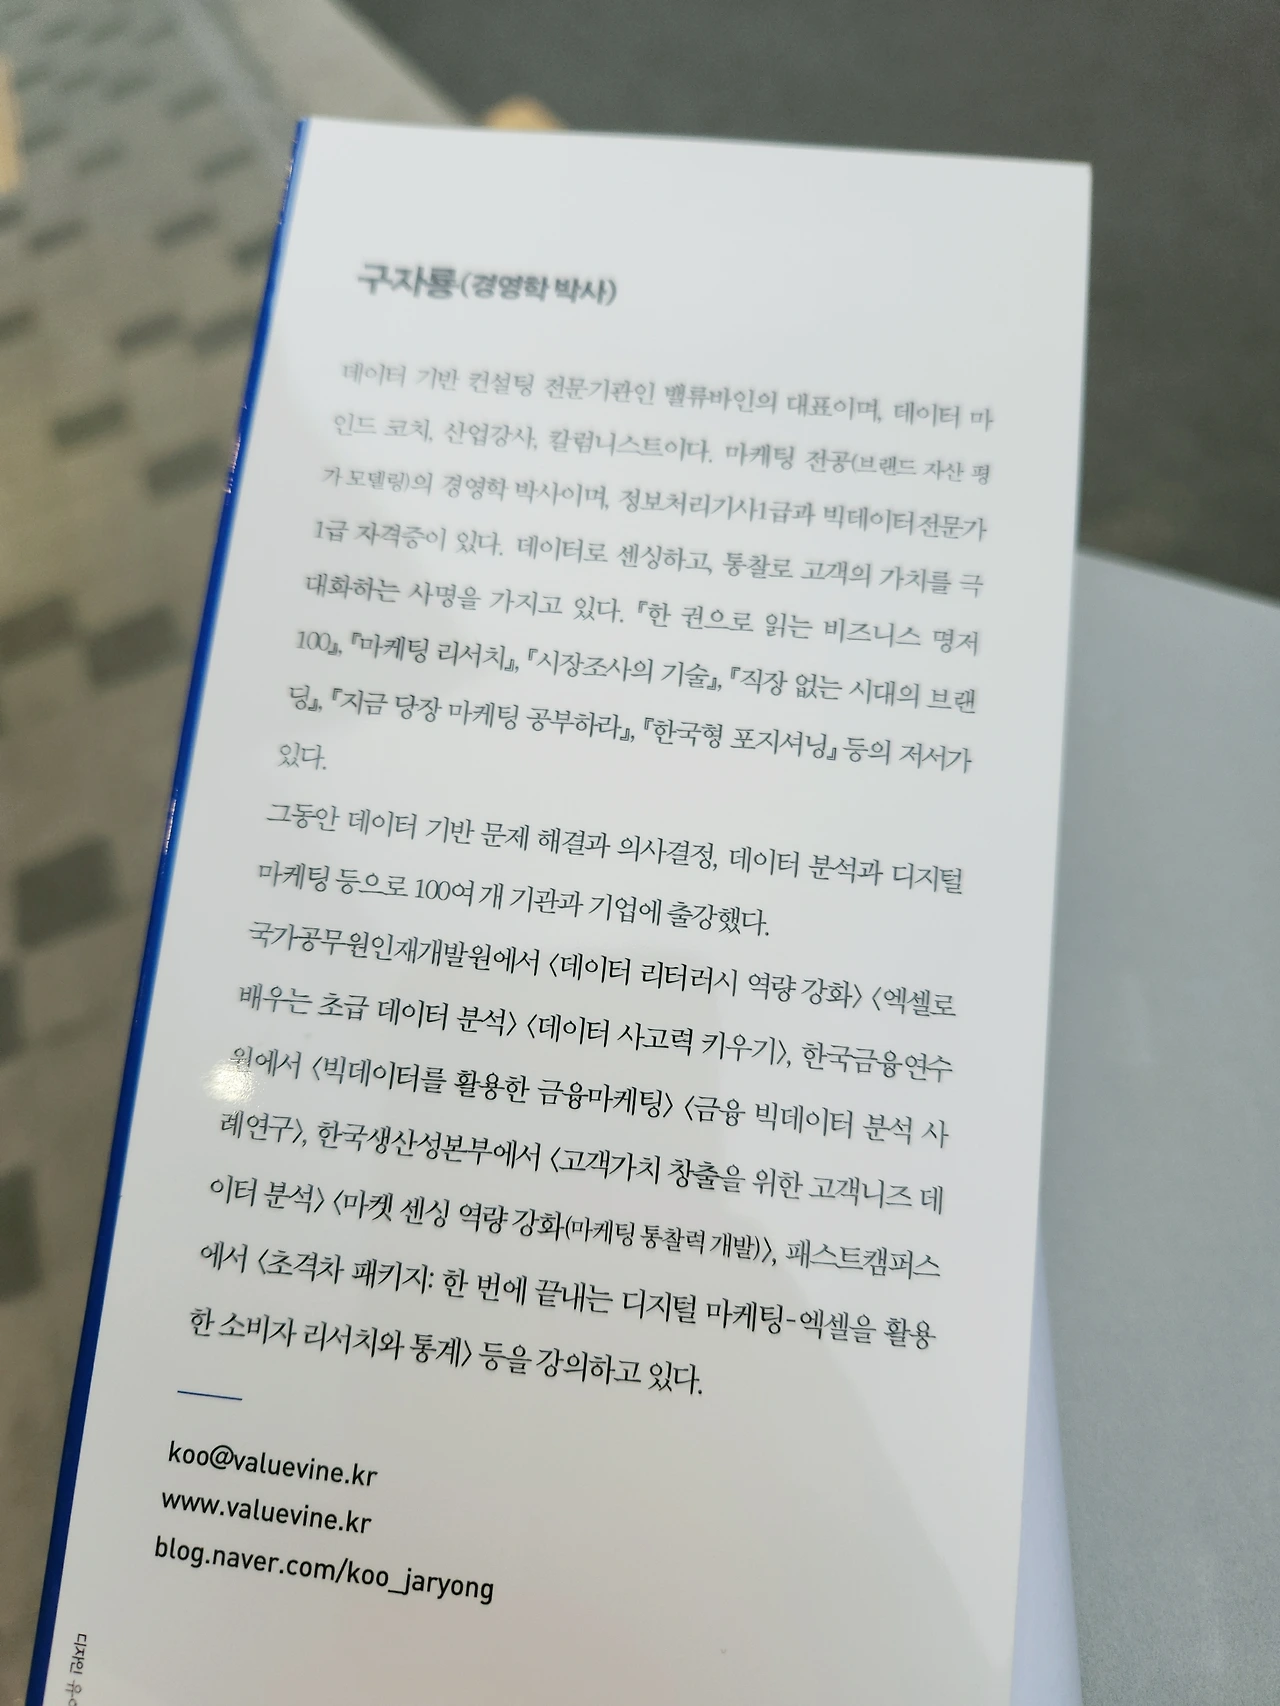 구자룡(경영학 박사)
데이터 기반 컨설팅 전문기관인 밸류바인의 대표이며, 데이터 마
인드 코치, 산업강사, 칼럼니스트이다. 마케팅 전공(브랜드 자산 평
가 모델링)의 경영학 박사이며, 정보처리기사1급과 빅데이터전문가
1급 자격증이 있다. 데이터로 센싱하고, 통찰로 고객의 가치를 극
대화하는 사명을 가지고 있다. 『한 권으로 읽는 비즈니스 명저
100』, 『마케팅 리서치』, 『시장조사의 기술』, 『직장 없는 시대의 브랜
딩』, 『지금 당장 마케팅 공부하라』, 『한국형 포지셔닝』 등의 저서가
있다.
그동안 데이터 기반 문제 해결과 의사결정, 데이터 분석과 디지털
마케팅 등으로 100여 개 기관과 기업에 출강했다.
국가공무원인재개발원에서 〈데이터 리터러시 역량 강화〉 〈엑셀로
배우는 초급 데이터 분석〉 〈데이터 사고력 키우기〉, 한국금융연수
원에서 〈빅데이터를 활용한 금융마케팅〉 〈금융 빅데이터 분석 사
례연구〉, 한국생산성본부에서 〈고객가치 창출을 위한 고객니즈 데
이터 분석〉 〈마켓 센싱 역량 강화(마케팅 통찰력 개발)〉, 패스트캠퍼스
에서 〈초격차 패키지: 한 번에 끝내는 디지털 마케팅-엑셀을 활용
한 소비자 리서치와 통계〉 등을 강의하고 있다.
koo@valuevine.kr
www.valuevine.kr
blog.naver.com/koo_jaryong
디자인